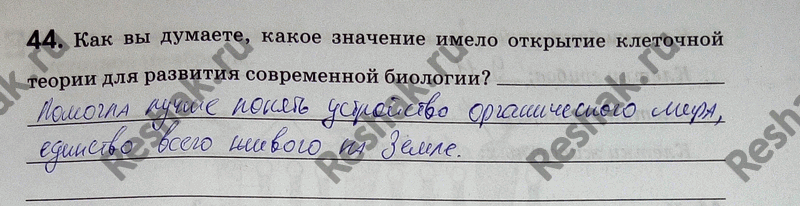 44. Как вы думаете, какое значение имело открытие клеточной
теории для развития современной биологии?
Помогла лучше понять устройство органического мира,
единство всего живого на Земле.
Reshak.ru
Reshak.ru
Reshak.ru
Reshak.ru
Reshak.ru
Reshak.ru